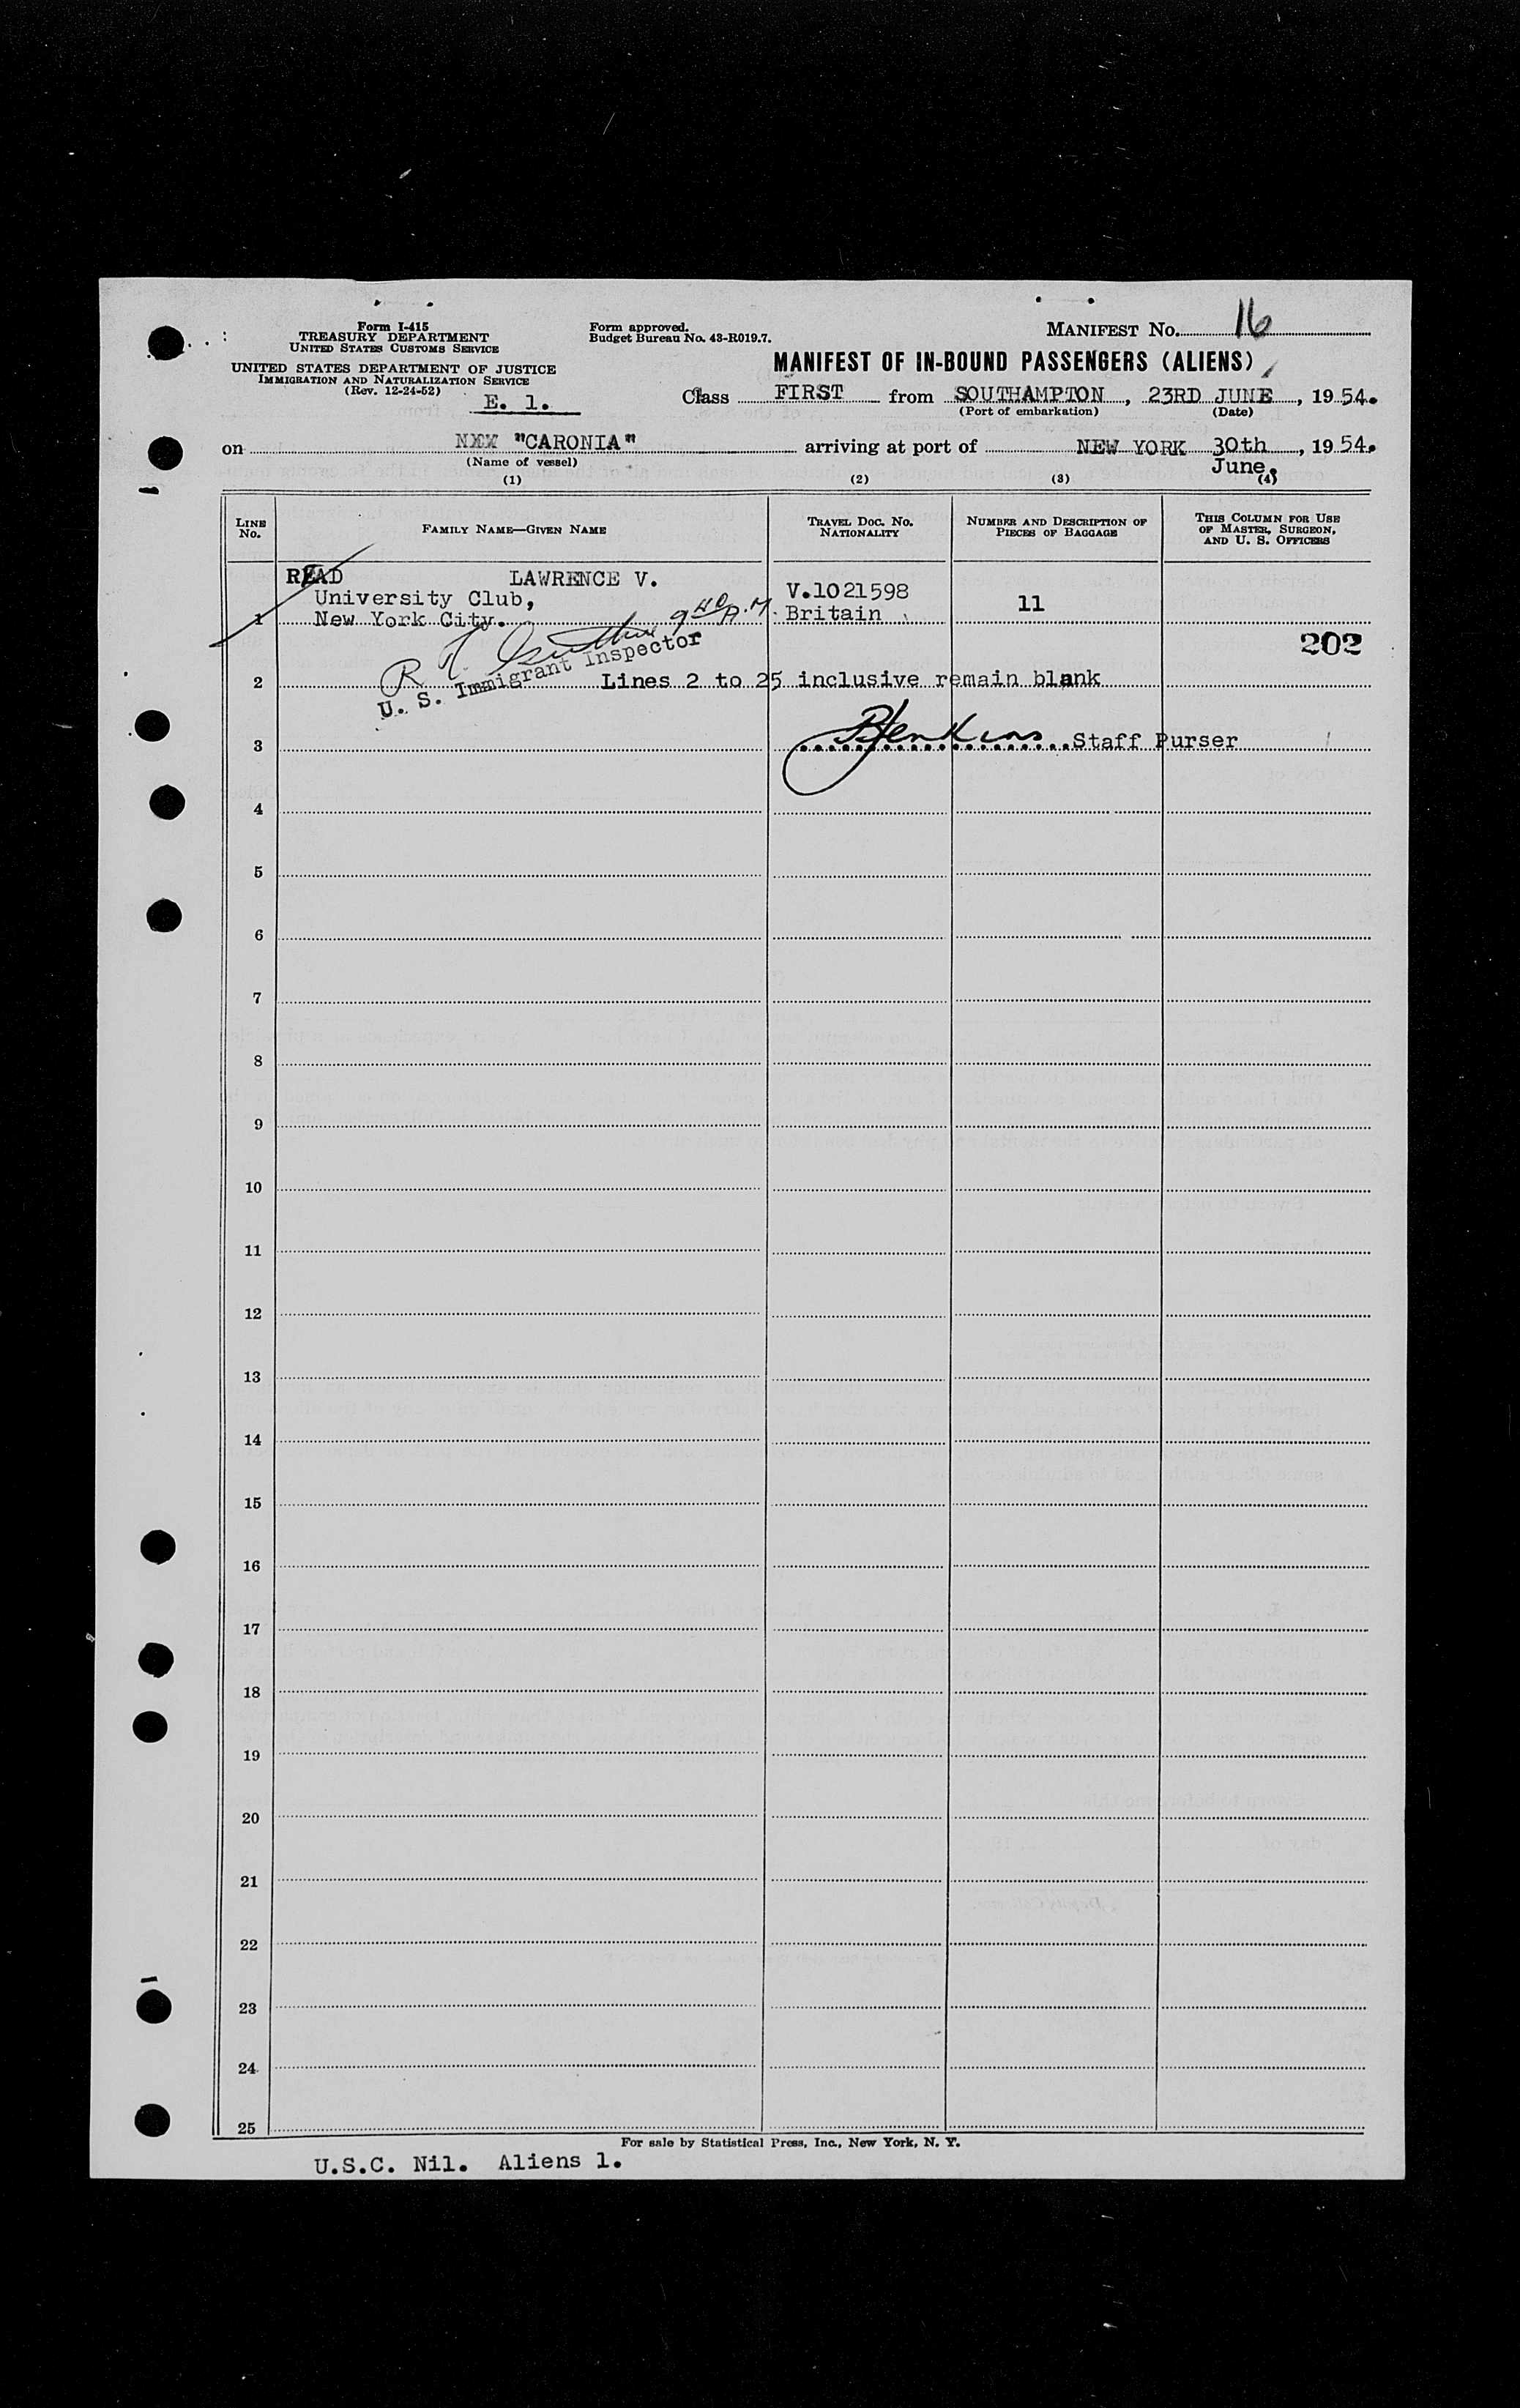 Form I-415
TREASURY DEPARTMENT
UNITED STATES CUSTOMS SERVICE
UNITED STATES DEPARTMENT OF JUSTICE
IMMIGRATION AND NATURALIZATION SERVICE
(Rev. 12-24-52)
E. 1.
Form approved.
Budget Bureau No. 43-R019.7.
MANIFEST NO. 16
MANIFEST OF IN-BOUND PASSENGERS (ALIENS)
Class FIRST from SOUTHAMPTON, 23RD JUNE, 1954.
(Port of embarkation) (Date)
on "CARONIA" arriving at port of NEW YORK 30th June, 1954.
(Name of vessel)
(1) (2) (3) (4)
LINE NO.
FAMILY NAME—GIVEN NAME
TRAVEL DOC. NO. NATIONALITY
NUMBER AND DESCRIPTION OF PIECES OF BAGGAGE
THIS COLUMN FOR USE OF MASTER, SURGEON, AND U. S. OFFICERS
READ LAWRENCE V.
University Club, V.1021598
1 New York City. Britain 11
202
U. S. Immigrant Inspector
2 Lines 2 to 25 inclusive remain blank
3 BJenkins Staff Purser
4
5
6
7
8
9
10
11
12
13
14
15
16
17
18
19
20
21
22
23
24
25
For sale by Statistical Press, Inc., New York, N. Y.
U.S.C. Nil. Aliens 1.